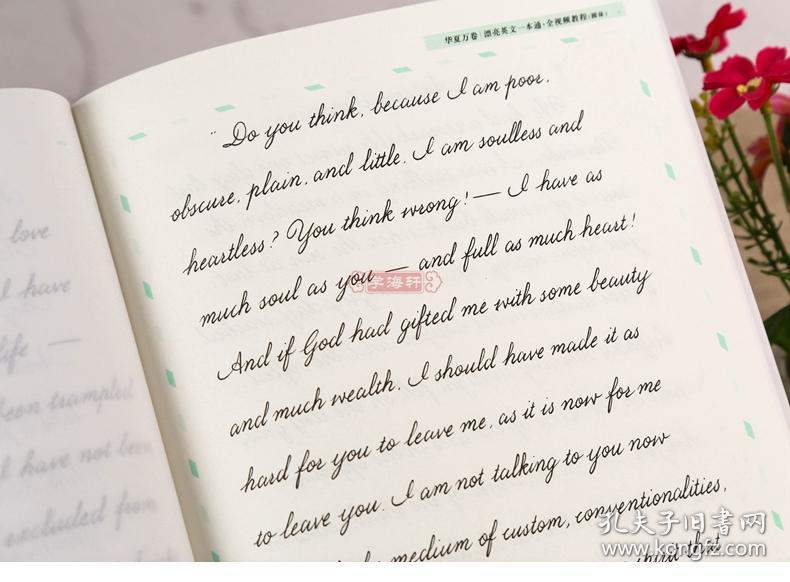 华夏万卷 漂亮英文一本通·全视频教程(圆体)
" Do you think, because I am poor,
obscure, plain, and little. I am soulless and
heartless? You think wrong! — I have as
much soul as you — and full as much heart!
And if God had gifted me with some beauty
and much wealth. I should have made it as
hard for you to leave me, as it is now for me
to leave you. I am not talking to you now
medium of custom, conventionalities,
that
love
I have
life —
been trampled
I have not been
excluded from
学海轩
孔夫子旧书网
www.kongfz.com